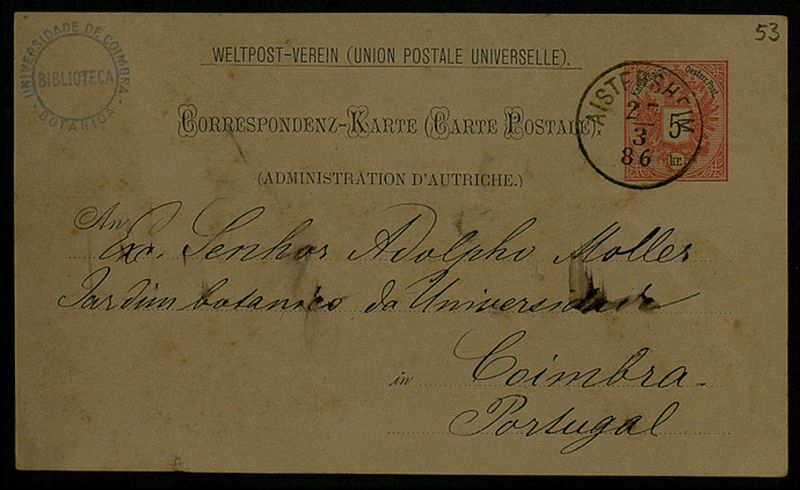 53
UNIVERSIDADE DE COIMBRA
BIBLIOTECA
BOTANICA
WELTPOST-VEREIN (UNION POSTALE UNIVERSELLE).
Kais. Königl. Oesterr. Post.
AISTERSHEIM
3
86
5
kr.
CORRESPONDENZ-KARTE (CARTE POSTALE).
(ADMINISTRATION D'AUTRICHE.)
An
Ex. Senhor Adolpho Moller
Jardim botanico da Universidade
in Coimbra.
Portugal